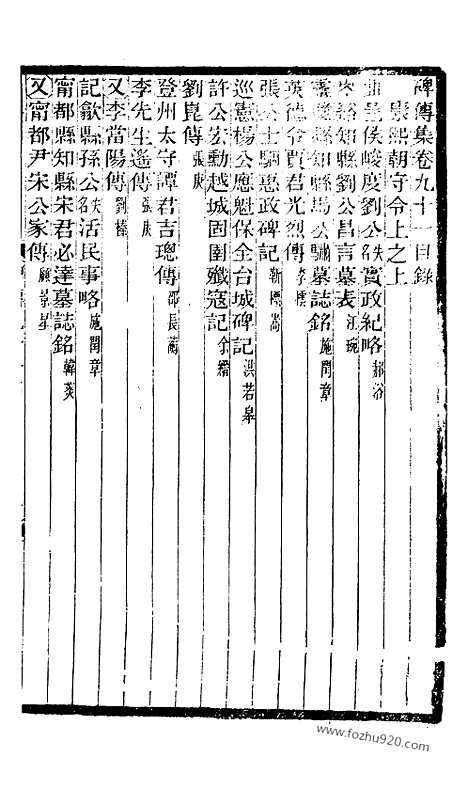 碑傳集卷九十一目錄
康熙朝守令上之上
邑侯峻度劉公名佚實政紀略 郝浴
谿知縣劉公昌言墓表 汪琬
縣知縣馬公驌墓誌銘 施閏章
英德令賈君光烈傳
張公士驌惠政碑記 靳標嵩
巡憲楊公應魁保全台城碑記 洪若皋
許公宏勳越城固圉殲寇記 余縉
劉崑傳 張庚
登州太守譚君吉璁傳 邵長蘅
李先生遙傳 張庚
又李當陽傳 劉榛
記歙縣孫公名佚活民事略 施閏章
甯都縣知縣宋君必達墓誌銘 韓菼
又甯都尹宋公家傳 顧景星
www.fozhu920.com